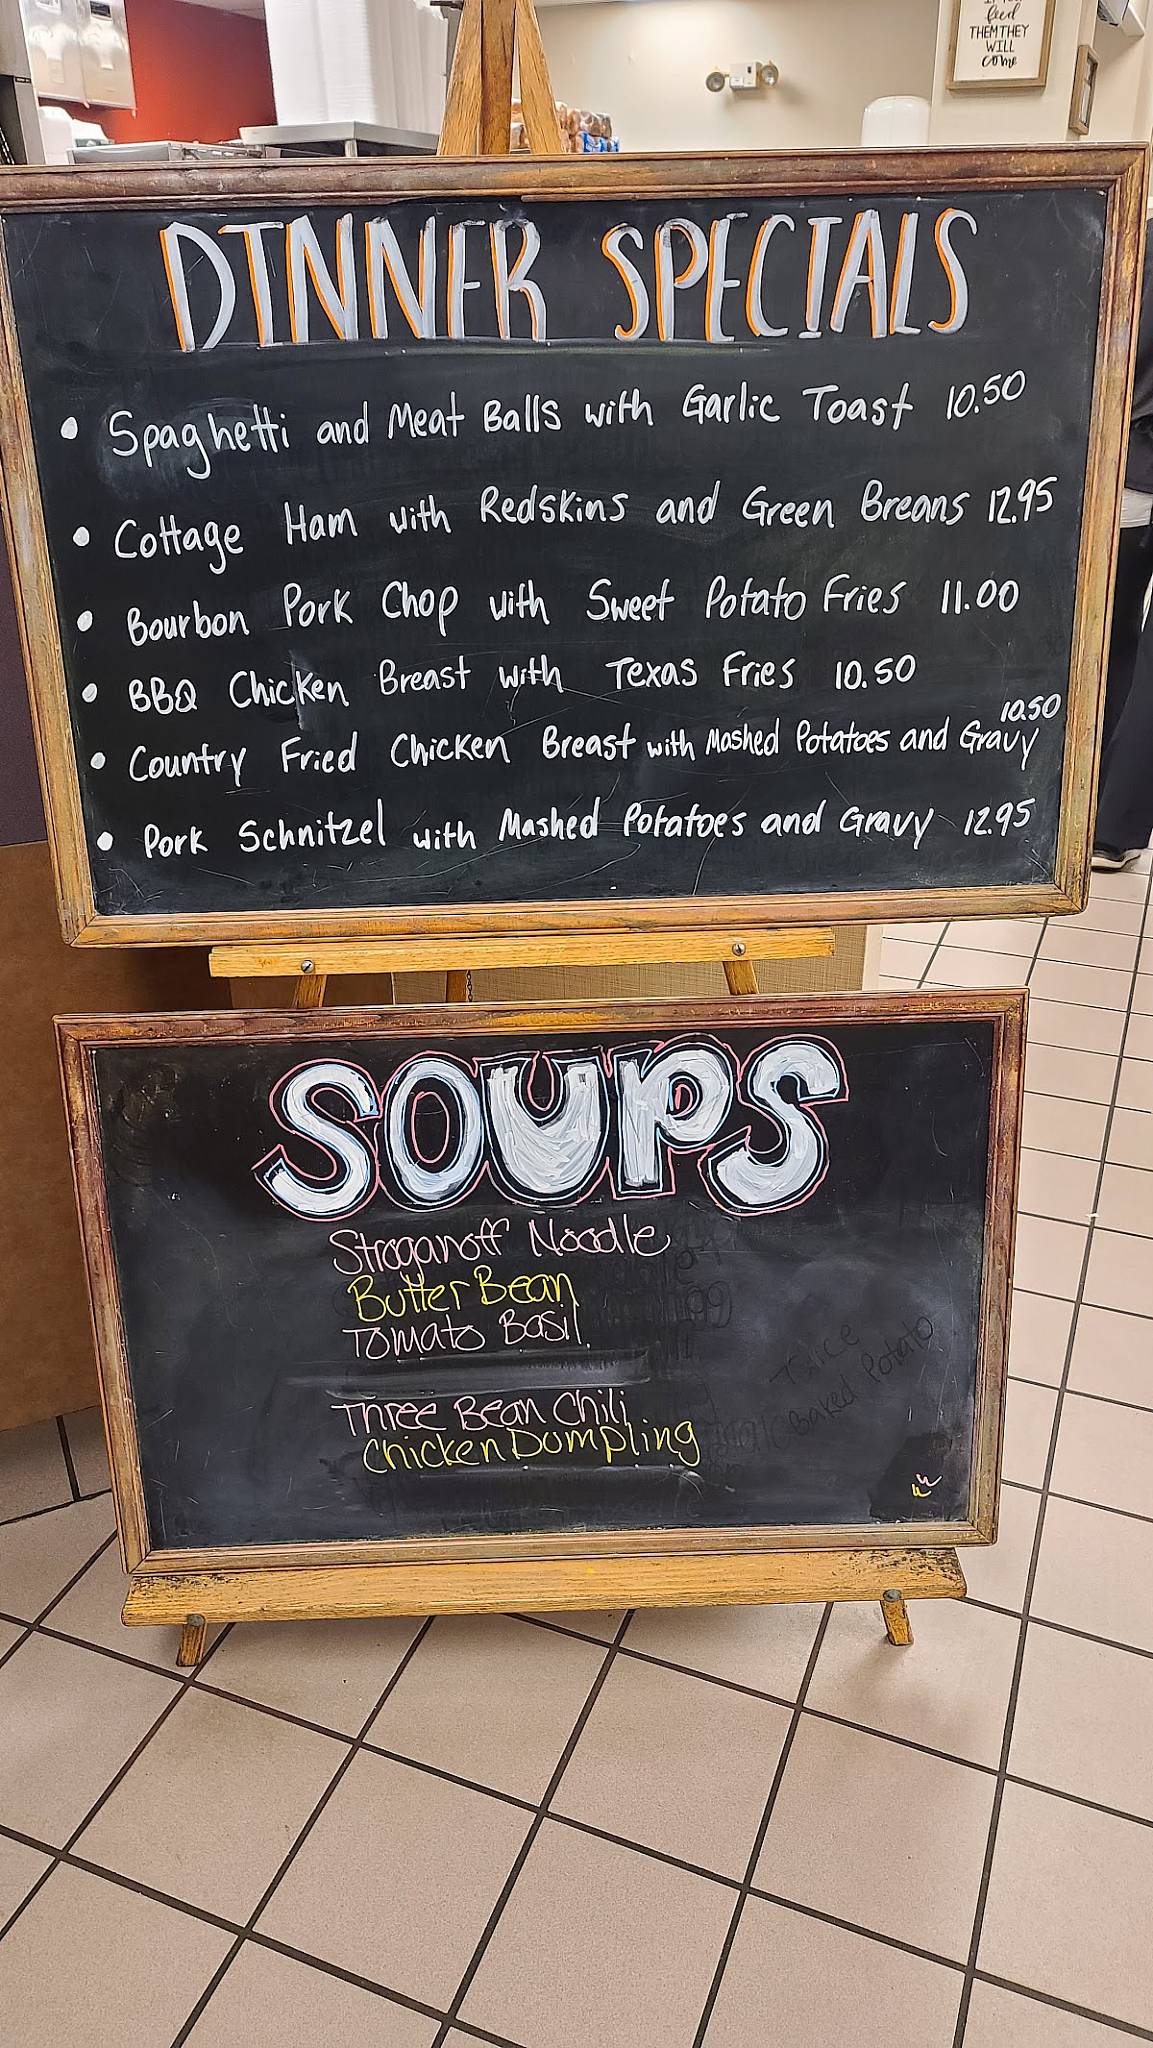 feed
THEM THEY
WILL
come
DINNER SPECIALS
• Spaghetti and Meat Balls with Garlic Toast 10.50
• Cottage Ham with Redskins and Green Breans 12.95
• Bourbon Pork Chop with Sweet Potato Fries 11.00
• BBQ Chicken Breast with Texas Fries 10.50
• Country Fried Chicken Breast with Mashed Potatoes and Gravy 10.50
• Pork Schnitzel with Mashed Potatoes and Gravy 12.95
SOUPS
Stroganoff Noodle
Butter Bean
Tomato Basil
Three Bean Chili
Chicken Dumpling
Baked Potato